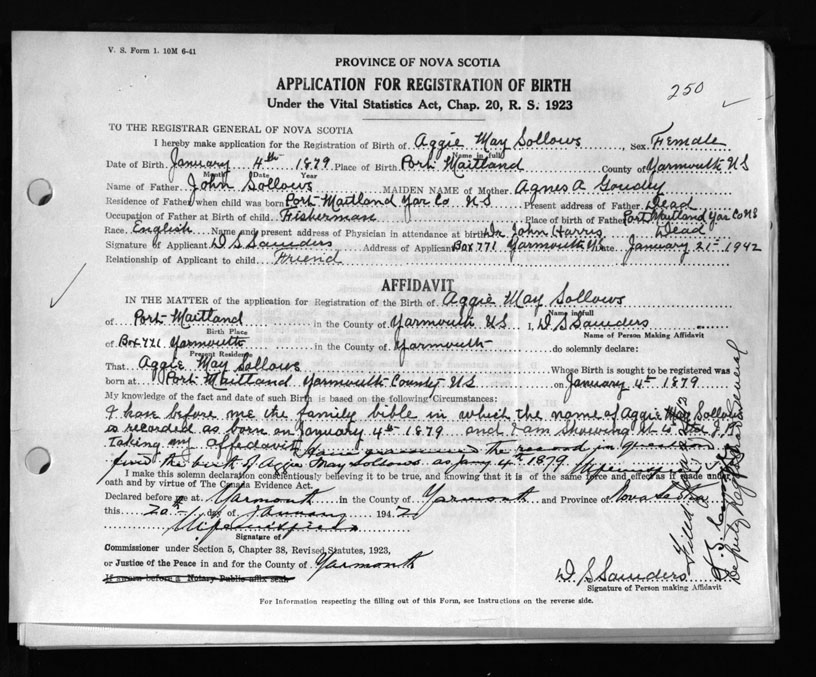 V. S. Form 1. 10M 6-41
PROVINCE OF NOVA SCOTIA
APPLICATION FOR REGISTRATION OF BIRTH
250
Under the Vital Statistics Act, Chap. 20, R. S. 1923
TO THE REGISTRAR GENERAL OF NOVA SCOTIA
I hereby make application for the Registration of Birth of Aggie May Sollows, Sex Female
Name in full
Date of Birth January 4th 1879 Place of Birth Port Maitland County of Yarmouth NS
Month Date Year
Name of Father John Sollows MAIDEN NAME of Mother Agnes A Goudey
Residence of Father when child was born Port Maitland Yar Co NS Present address of Father Dead
Occupation of Father at Birth of child Fisherman Place of birth of Father Port Maitland Yar Co NS
Race English Name and present address of Physician in attendance at birth Dr John Harris Dead
Signature of Applicant D S Saunders Address of Applicant Box 771 Yarmouth NS Date January 21st 1942
Relationship of Applicant to child Friend
AFFIDAVIT
IN THE MATTER of the application for Registration of the Birth of Aggie May Sollows
Name in full
of Port Maitland in the County of Yarmouth NS I, D S Saunders
Birth Place Name of Person Making Affidavit
of Box 771 Yarmouth in the County of Yarmouth do solemnly declare:
Present Residence
That Aggie May Sollows Whose Birth is sought to be registered was
born at Port Maitland Yarmouth County NS on January 4th 1879
My knowledge of the fact and date of such Birth is based on the following Circumstances:
I have before me the family bible in which the name of Aggie May Sollows
is recorded as born on January 4th 1879 and I am showing it to the J.P.
taking my affidavit the record in question
find the birth of Aggie May Sollows as Jany 4th 1879
I make this solemn declaration conscientiously believing it to be true, and knowing that it is of the same force and effect as if made under
oath and by virtue of The Canada Evidence Act.
Declared before me at Yarmouth in the County of Yarmouth and Province of Nova Scotia
this 20th day of January 1942
Signature of
Commissioner under Section 5, Chapter 38, Revised Statutes, 1923,
or Justice of the Peace in and for the County of Yarmouth
If sworn before a Notary Public affix seal
D S Saunders
Signature of Person making Affidavit
For Information respecting the filling out of this Form, see Instructions on the reverse side.
Filed
Deputy Registrar General